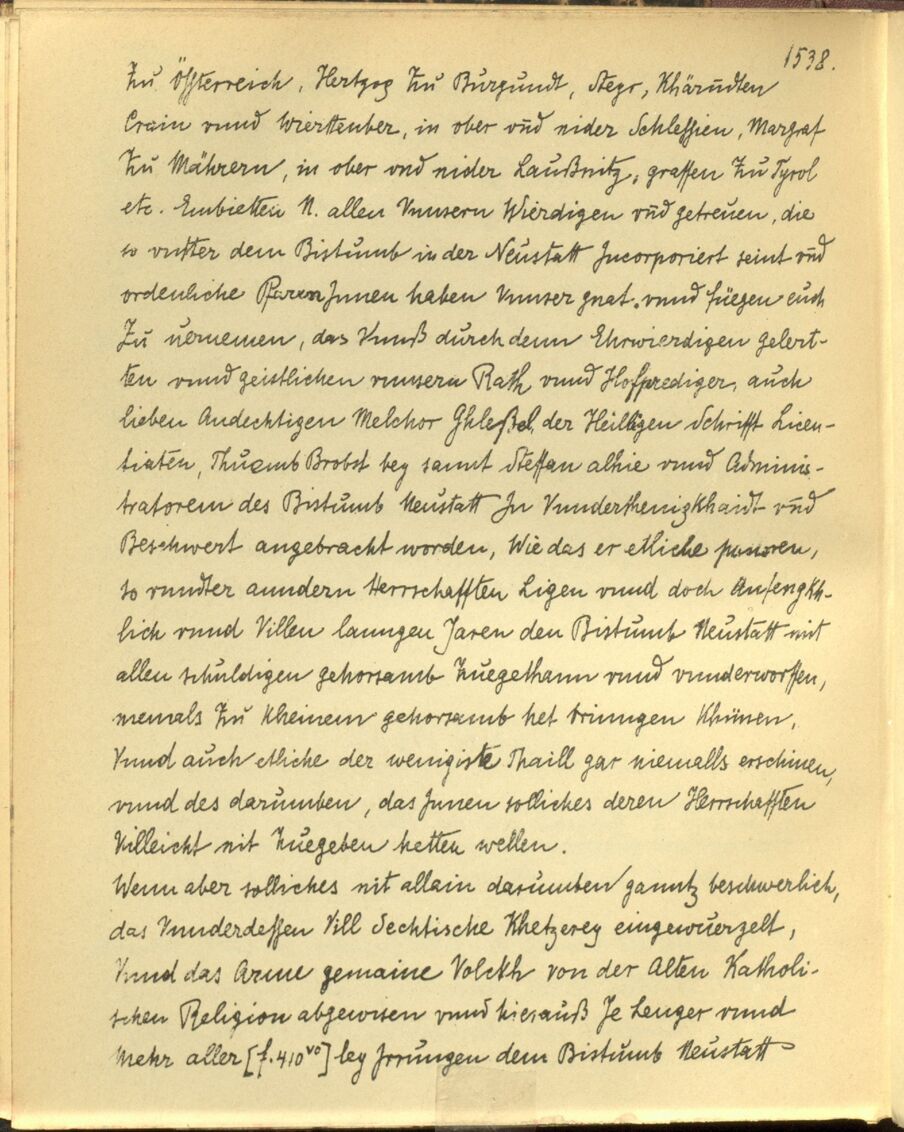 1538.
Zu Össterreich, Hertzog Zu Burgundt, Steyr, Khärndten
Crain vnnd Wierttenber, in ober vnd nider Schlessien, Margraf
Zu Mährern, in ober vnd nider Laußnitz, graffen Zu Tyrol
etc. Embietten N. allen Vnnsern Wierdigen vnd getreuen, die
so vntter dem Bistumb in der Neustatt Incorporiert seint vnd
ordenliche Pfarrn Innen haben Vnnser gnat. vnnd füegen euch
Zu uernemen, das Vnnß durch denn Ehrwierdigen gelert-
ten vnnd geistlichen vnnsern Rath vnnd Hofprediger, auch
lieben Andechtigen Melchor Ghleßel, der Heilligen Schrifft Licen-
tiaten, Thuemb Brobst bey sannt Steffan alhie vnnd Adminis-
tratorem des Bistumb Neustatt In Vnnderthenigkhaidt vnd
Beschwert angebracht worden, Wie das er etliche
so vnndter anndern Herrschafften Ligen vnnd doch Anfengkh-
lich vnnd Villen lanngen Jaren den Bistumb Neustatt mit
allen schuldigen gehorsamb Zuegethann vnnd vnnderworffen,
niemals Zu kheinem gehorsamb het bringen Khünen,
Vnnd auch etliche der wenigiste Thaill gar niemalls erschinen,
vnnd des darumben, das Innen solliches deren Herrschafften
Villeicht nit Zuegeben hetten wellen.
Wenn aber solliches nit allain darumben ganntz beschwerlich,
das Vnnderdessen Vill Sechtische Khetzerey eingewuerzelt,
Vnnd das Arme gemaine Volckh von der Alten Katholi-
schen Religion abgewisen vnnd hierauß Je Lenger vnnd
Mehr aller [f. 410 vo] ley Irrungen dem Bistumb Neustatt